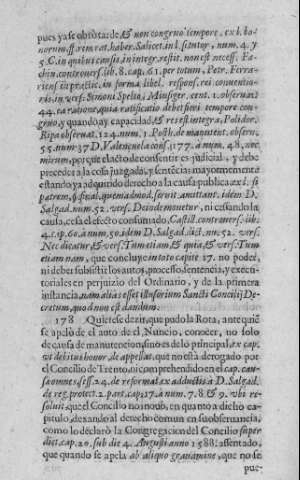 pues ya se obtuto: de & non congruo tempore, ex l. bo-
norum ff. rem rat. haber. Salicet. in l. si tutor, num. 4. y
5. C. in quibus causis in integr. restit. non est necess. Fa-
chin. controvers. lib. 8. cap. 61. per totum, Petr. Ferra-
riens. in practic. in forma libel. respons. rei conventi-
ris, in verb. Simoni Spelta, Munsiger. cent. 1. observat.
44. ea ratione, quia ratificatio debet fieri tempore con-
gruo, y quando ay capacidad, & res est integra, Polidor,
Ripa observat. 124. num. 1. Posth. de manutent. observ.
55. num. 37 D. Valençuela cons. 177. à num. 48. nec
mirum, porque el acto de consentir es judicial, y debe
preceder à la cosa juzgada, y sentècia: mayormente
estando ya adquirido derecho à la causa publica ex l. si
patrem, §. final. quemadmod. servit. amittant. idem D.
Salgad. num. 52. vers. Deinde monetur, ni cessando la
causa, cessa el efecto consumado, Castill. controvers. lib.
4. cap. 60. à num. 50. idem D. Salgad. dict. nu. 52. vers.
Nec dicatur, & vers. Tum etiam & quia, & vers. Tum
etiam nam, que concluye in toto capite 17. no poder,
ni deber subsistir los autos, processo, sentencia, y execu-
toriales en perjuizio del Ordinario, y de la primera
instancia, nam aliàs esset illusorium Sancti Concilij De-
cretum, quod non est dandum.
178 Quierese dezir, que pudo la Rota, ante quiē
se apelò de el auto de el Nuncio, conocer, no solo
de causa de manutencion, sino es de lo principal, ex cap.
ut debitus honor, de appellat. que no està derogado por
el Concilio de Trento, ni comprehendido en el cap. cau-
sa omnes, sess. 24. de reformat. ex adductis à D. Salgad.
de reg. protect. 2. part. cap. 17. à num. 7. 8. & 9. ubi re-
solvit, que el Concilio no innob, en quanto a dicho ca-
pitulo, dexando al derecho comun en su observancia;
como lo declarò la Congregacion del Concilio super
dict. cap. 20. sub die 4. Augusti anno 1588. assentado,
que quando se apela ab aliquo gravamine, que no se
pue-